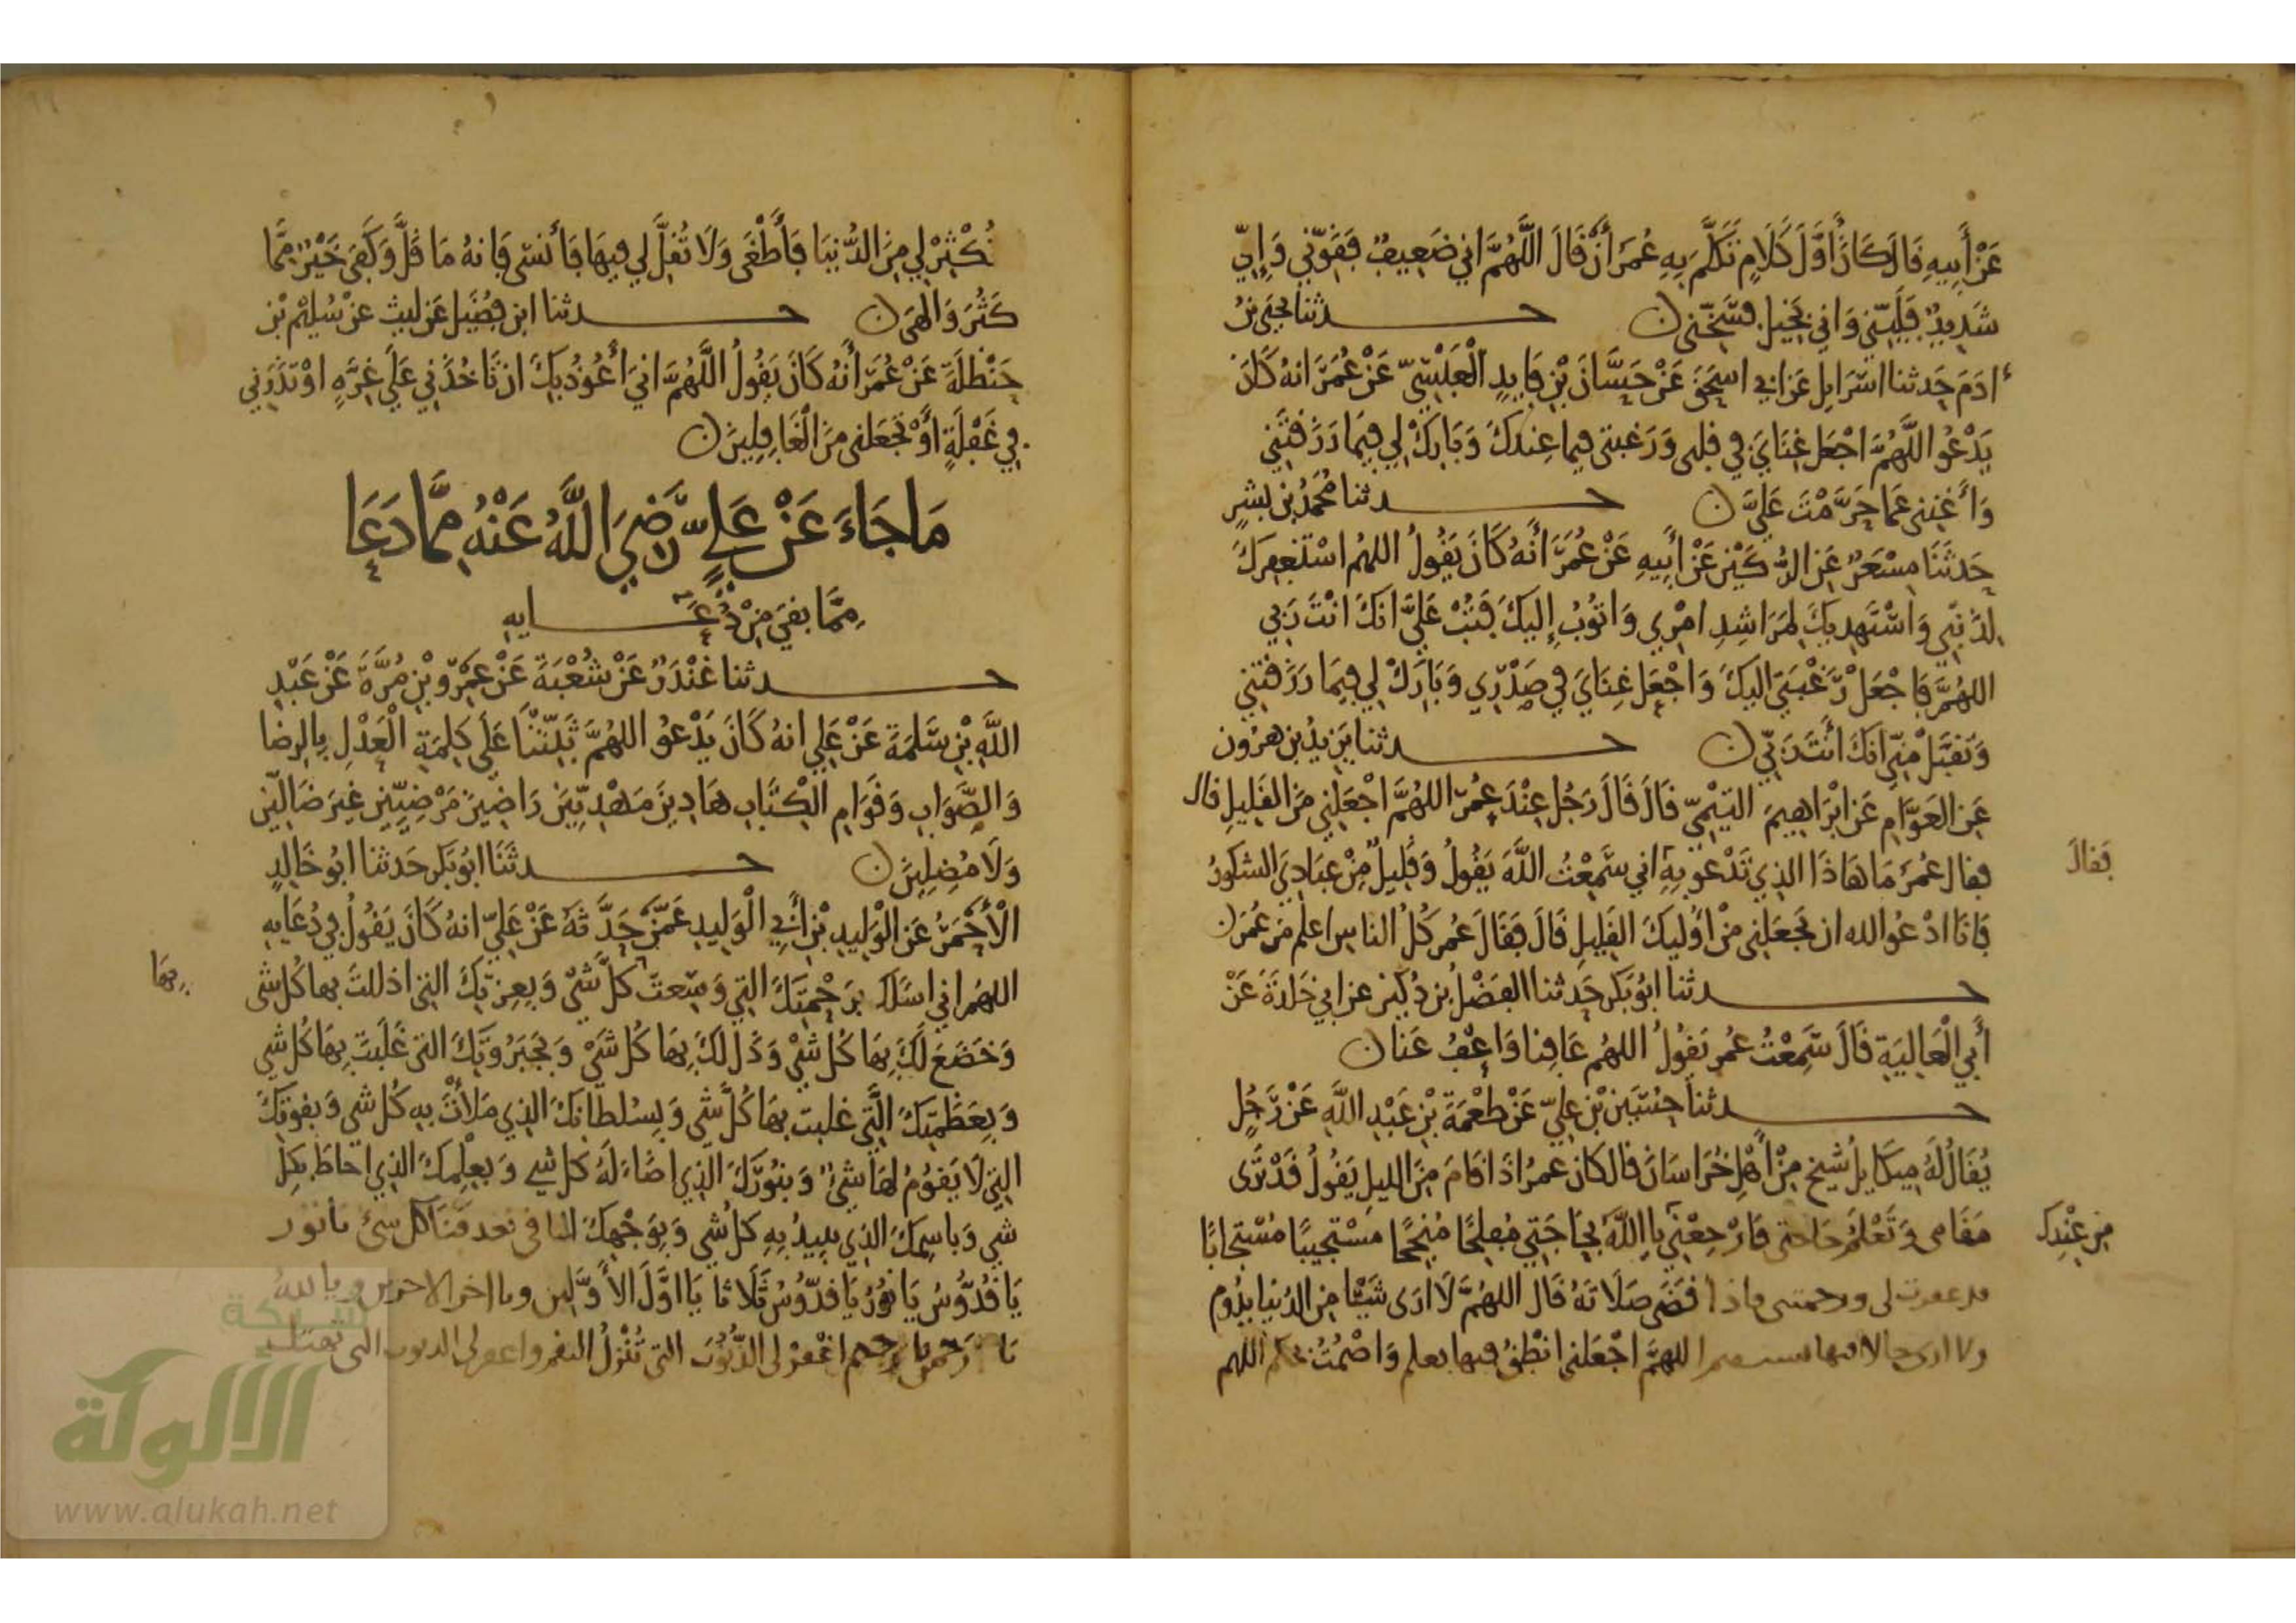 عَنْ أَبِيهِ قَالَ كَانَ أَوَّلَ كَلَامٍ تَكَلَّمَ بِهِ عُمَرُ أَنْ قَالَ اللَّهُمَّ اني ضَعِيفٌ فَقَوِّني وَإِنِّي
شَدِيدٌ فَلَيِّنِّي وَاني بَخِيل فسَخِّنى
حدثنا يحيَى بنُ
ءادَمَ حَدثنا اسْرَايِل عَن ابي اسحَقَ عَنْ حَسَّانَ بْنِ فَايِدٍ الْعَبْسِيّ عَنْ عُمَرَ انهُ كَانَ
يَدْعُو اللَّهُمَّ اجْعَل غِنَايَ في قلبى وَرَغبتى فيما عِندَكَ وَبَارِكْ لِي فِيمَا رَزَقتَنِي
وَأَغْنِنى عَما حَرَّمْتَ عَلَيَّ
حدثنا مُحَمَّدُ بن بِشرٍ
حَدثَنَا مِسْعَرٌ عَن الرُّكَيْنِ عَنْ أَبِيهِ عَنْ عُمَرَ أَنهُ كَانَ يَقُولُ اللهُم اسْتَغفِركَ
لِذَنْبِي وَاسْتَهدِيكَ لمَرَاشِدِ امْرِي وَاتُوبُ إِليكَ فَتُبْ عَلَيَّ انكَ انْتَ رَبي
اللهُمَّ فَاجْعَلْ رَغْبَتِيَ اليكَ وَاجْعَل غِنَايَ فِي صَدْرِي وَبَارِكْ لِي فِيمَا رَزَقْتَنِي
وَتَقَبَّلْ مِنِّي انكَ أَنتَ رَبّي
حدثنا يَزِيدُ بن هرُون
عَنِ العَوَّامِ عَن ابْرَاهِيمَ التَيْمِيّ قَالَ قَالَ رَجُل عِنْدَ عُمَرَ اللهُمَّ اجْعَلنِي مِنَ القَلِيلِ قال
فقال عُمَرَ مَا هَاذَا الذِي تَدْعُو بِهِ اني سَمِعْتُ اللَّهَ يَقُولُ وَقَلِيلٌ مِنْ عِبَادِيَ الشكورُ
فَقَالَ
فَانَا ادْعُوا الله ان يجْعَلنِى مِنْ اوُليكَ القَلِيلِ قَالَ فَقَالَ عُمر كُلُ الناسِ اعلم مِن عُمَرَ
حدثنا ابُو بَكر حَدثنا الفَضْلُ بن دُكَين عن ابي خَلدَةَ عَنْ
أَبِي الْعَالِيَةِ قَالَ سَمِعْتُ عُمر يَقُولُ اللهُم عَافِنا وَاعْفُ عَنا
حدثنا حُسَيْن بْن عَلِيّ عَنْ طُعْمَةَ بْنِ عَبْدِ اللَّهِ عَنْ رَجُلٍ
يُقَالُ لَهُ مِيكَايِل شَيخ مِنْ أَهْلِ خُرَاسَانَ قال كَانَ عُمَرُ اذَا قامَ مِنَ الليلِ يَقُولُ قَدْ تَرَى
مَقَامى وَتَعْلَمُ حَاجَتى فَارْجِعْنِي يا اللَّهُ بِحَاجَتِي مُفلِحًا مُنْجِحًا مُسْتَجيبًا مُسْتَجابًا
مِن عِنْدِكَ
قد غفرت لى ورحمتنى فاذا قضَى صَلَاتَهُ قَال اللهُمَّ لَا ارَى شَيْئًا مِن الدُنيَا يَدُوم
ولا ارى حالا فيها يستقيم اللهُمَّ اجْعَلنى انْطِقُ فيها بعلم وَاصْمُتُ بحكم اللهم
تُكْثِرْ لِي مِنَ الدُّنيَا فَأَطْغَى وَلَا تُقِلَّ لِي فِيهَا فَأَنسَى فَانهُ مَا قَلَّ وَكَفَى خَيْرٌ مِمَّا
كَثُرَ وَالهَى
حدثنا ابن فضَيل عَن ليث عن سُليْم بْن
حَنْظلَةَ عَنْ عُمَرَ أَنهُ كَانَ يَقُولُ اللَّهُمَّ اني أَعُوذُ بِكَ ان تَاخُذَني عَلَى غِرَّةٍ اوْ تَذَرَنِي
فِي غَفْلَةٍ أَوْ تَجْعَلنى مِنَ الْغَافِلِينَ
مَا جَاءَ عَنْ عَلِيٍّ رَضِيَ اللَّهُ عَنْهُ مِمَّا دَعَا
مِمَّا بقيَ مِنْ دُعَايِهِ
حدثنا غنْدَرٌ عَنْ شُعْبَةَ عَنْ عَمْرِو بْنِ مُرَّةَ عَنْ عَبْدِ
اللَّهِ بْنِ سَلِمَةَ عَنْ عَلِي انهُ كَانَ يَدْعُو اللهُمَّ ثَبِّتْنَا عَلَى كَلِمَةِ الْعَدْلِ بِالرِضَا
وَالصَّوَابِ وَقَوَامِ الْكتَابِ هَادِينَ مَهْدِيِّينَ رَاضِينَ مَرْضِيِّينَ غَيرَ ضَالِّينَ
وَلَا مُضِلِينَ
حدثَنَا ابُو بَكر حَدثنا ابُو خَالِدٍ
الْأَحْمَرُ عَن الْوَلِيدِ بْن أَبِي الْوَلِيدِ عَمَّنْ حَدَّثَهُ عَنْ عَلِيّ انهُ كَانَ يَقُولُ فِي دُعَايِهِ
اللهُم اني اسَلكَ بِرَحْمَتِكَ التِي وَسِعتْ كلَّ شَيْ وَبِعِزتِكَ التِى اذللتَ بها كُل شى
بِهَا
وَخضَعَ لَكَ بِهَا كُل شَيْ وَذَلَ لكَ بِهَا كُل شَيْ وَبِجَبَرُوتِكَ التى غَلَبتَ بِهَا كُل شى
وَبِعَظَمَتِكَ الَّتِي غلبت بِهَا كُلَّ شَى وَبِسُلطَانِكَ الذِي مَلأتَ بِهِ كُل شى وَبقوتِكَ
التِي لَا يَقُومُ لهَا شَىْ وَبِنُورِكَ الذِي اضَاءَ لَهُ كل شي وَبِعِلمِكَ الذِي احَاطَ بِكلِ
شي وَبِاسمِكَ الذِي يبيدُ بِهِ كل شي وَبِوَجْهِكَ الباقى بعد فنَا كل شئ يا نور
يَا قُدُّوسُ يَا نُورُ يَا قدُّوسُ ثَلَاثا يَا اوَّلَ الأَوَّلِين ويا اخر الاخرين ويا اللهُ
يَا رَحمن يا رحِيم اغْفِرْ لى الذُّنُوبَ التى تُنْزِلُ النقم واغفر لى الذنوب التى تهتك
شبكة
الألوكة
www.alukah.net